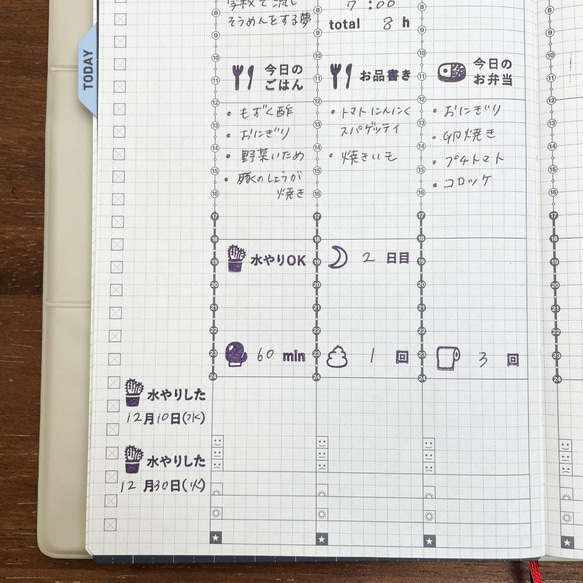 TODAY
学校で流し
そうめんをする夢
7:00
total 8 h
今日の
ごはん
・もずく酢
・おにぎり
・野菜いため
・豚のしょうが
焼き
お品書き
・トマトにんにく
スパゲッティ
・焼きいも
今日の
お弁当
・おにぎり
・卵焼き
・プチトマト
・コロッケ
水やりOK
2 日目
60 min
1 回
3 回
水やりした
12月10日(水)
水やりした
12月30日(火)
8
9
10
11
12
13
14
15
16
17
18
19
20
21
22
23
24